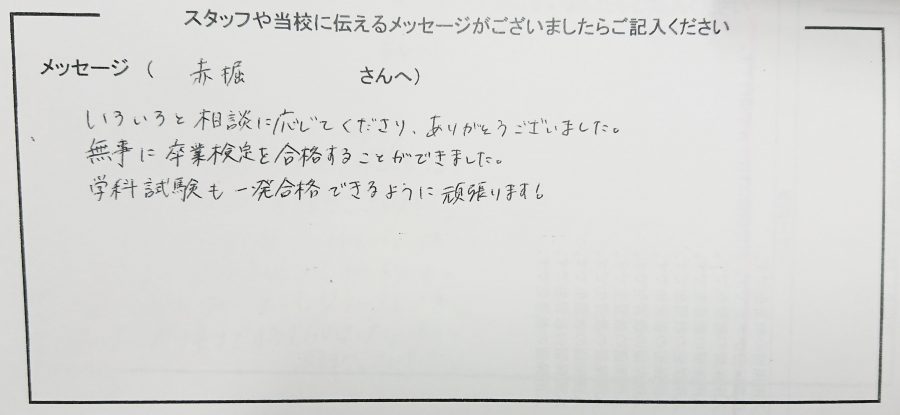 スタッフや当校に伝えるメッセージがございましたらご記入ください
メッセージ（ 赤堀 さんへ）
いろいろと相談に応じてくださり、ありがとうございました。
無事に卒業検定を合格することができました。
学科試験も一発合格できるように頑張ります!